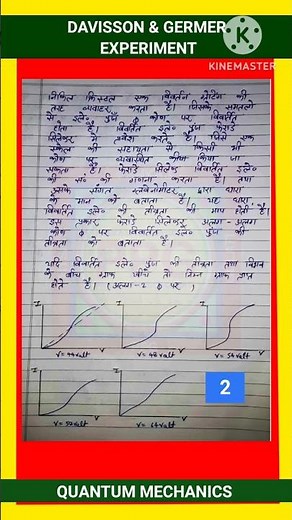 DAVISSON & GERMER
EXPERIMENT
K
KINEMASTER
निकिल क्रिस्टल एक विवर्तन ग्रेटिंग की
तरह व्यवहार करता है। जिसके
से इले० पुंज कोण पर विवर्तित
होता है। विवर्तित इले० पुंज फैराडे
सिलेंडर में प्रवेश करते है। जिसे एक
स्केल की सहायता से किसी भी
कोण पर व्यवस्थित किया जा
सकता है। फैराडे सिलेंडर विवर्तित इले०
की सं० की गणना करता है। तथा
उसके संगत द्वारा धारा
के मान को बताता है। यह धारा
विवर्तित इले० की तीव्रता की माप होती है।
इस प्रकार फैराडे सिलेंडर अलग-अलग
कोण ɸ पर विवर्तित इले० पुंज की
तीव्रता को बताता है।
यदि विवर्तित इले० पुंज की तीव्रता तथा विभव
के बीच ग्राफ खींचे तो निम्न ग्राफ प्राप्त
होते हैं। (अलग-2 ɸ पर)
I I I
V V V
V=44volt V=48volt V=54volt
I I 2
V V
V=64volt
QUANTUM MECHANICS